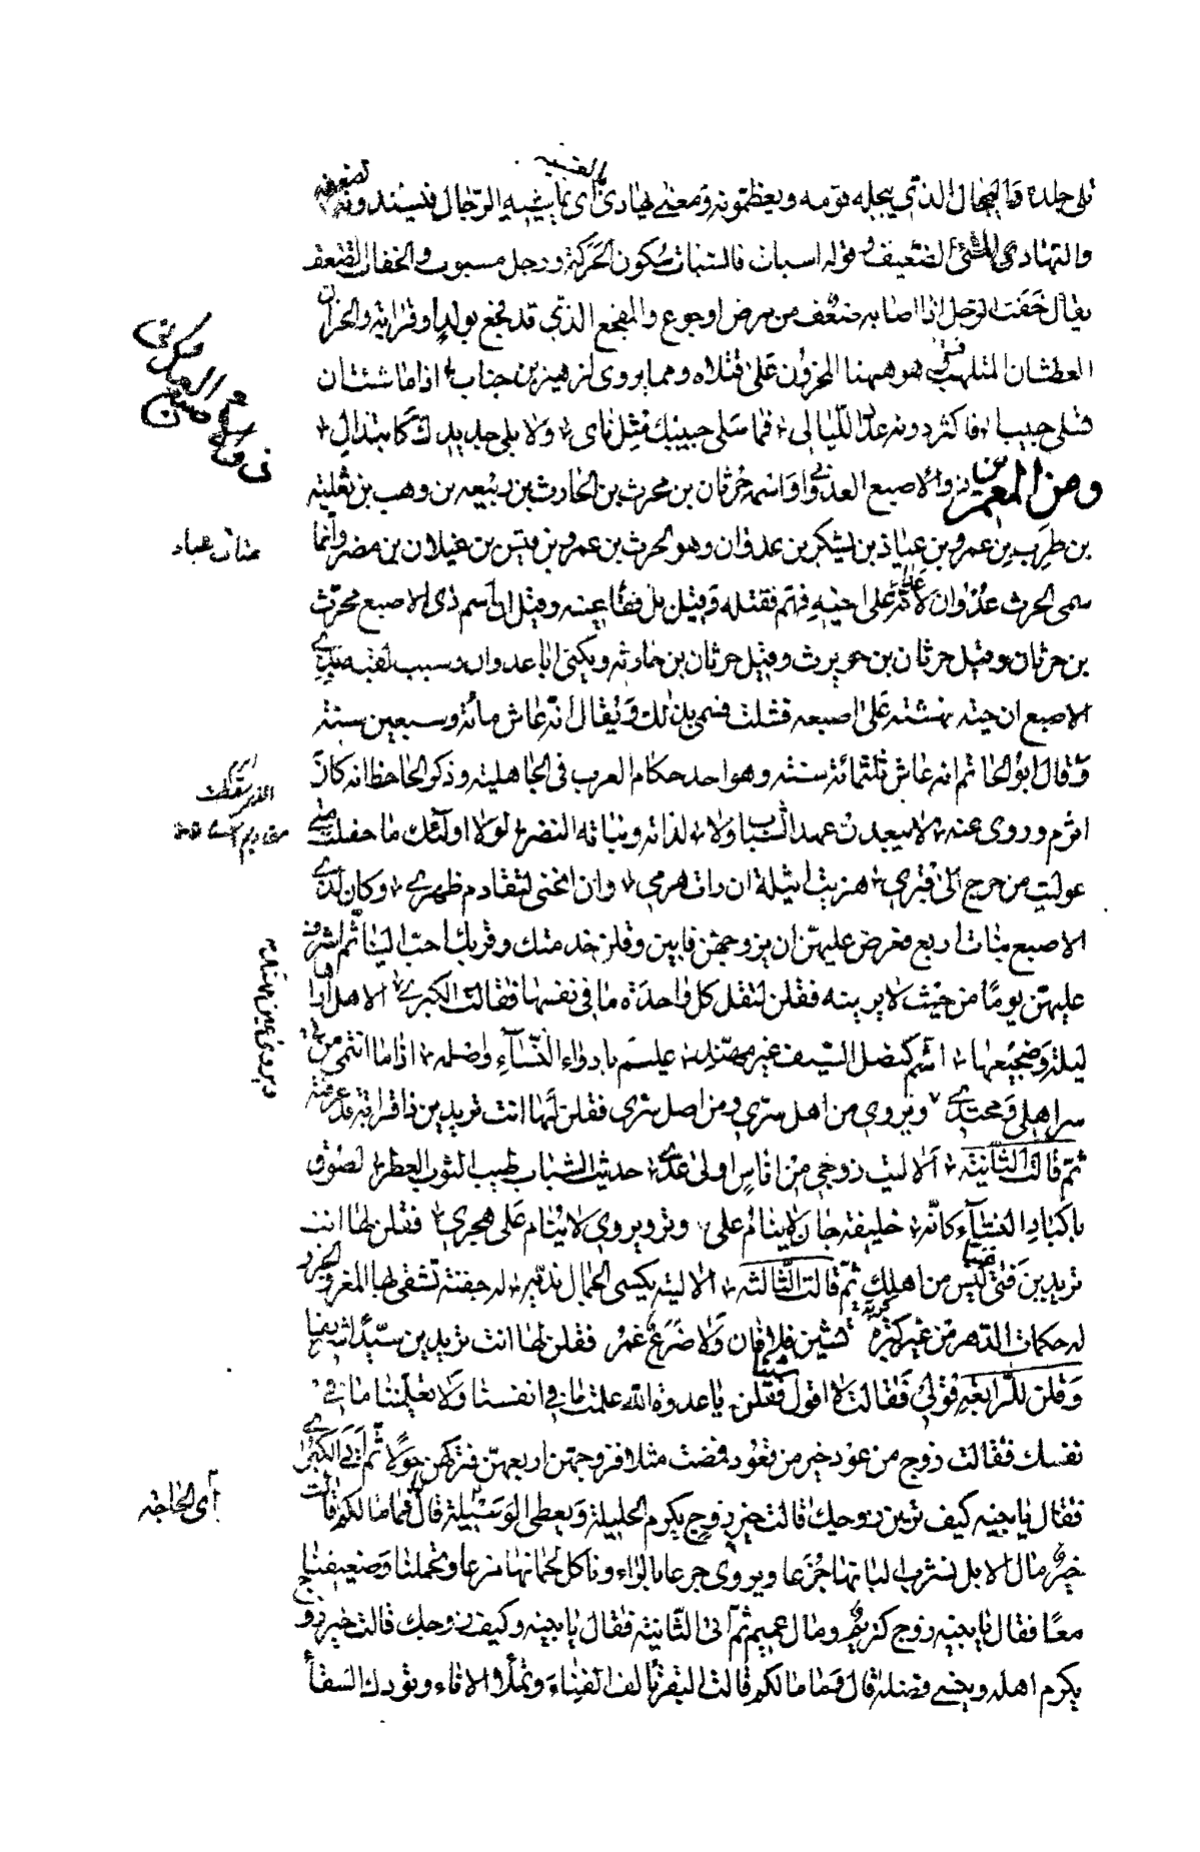 على جلده قال البجال الذي يبجله قومه ويعظمونه ومعنى يهادي أي يماشيه الرجال فيسندونه لضعفه
والتهادي المشي الضعيف وقوله اسبات فالسبات سكون الحركة ورجل مسبوت والخفات الضعف
يقال خفت الرجل اذا اصابه ضعف من مرض او جوع والمفجع الذي قد فجع بولد او قرابة والحران
العطشان الملتهب وهو ههنا المحزون على قتلاه ومما يروى لزهير بن جناب اذا ما شئت ان
تسلى حبيبا فاكثر دونه عدد الليالي فما سلى حبيبك مثل ناى ولا بلى جديدك كابتذال
ومن المعمرين ذو الاصبع العدواني واسمه حرثان بن محرث بن الحارث بن ربيعه بن وهب بن ثعلبة
بن ظرب بن عمرو بن عياذ بن يشكر بن عدوان وهو الحرث بن عمرو بن قيس بن عيلان بن مضر وانما
سمى الحرث عدوان لانه عدا على اخيه فهم فقتله وقيل بل فقأ عينه وقيل ان اسم ذى الاصبع محرث
بن حرثان وقيل حرثان بن حويرث وقيل حرثان بن حارثه ويكنى ابا عدوان وسبب لقبه بذي
الاصبع ان حيته نهشته على اصبعه فشلت فسمى بذلك ويقال انه عاش مائة وسبعين سنة
وقال ابو الحاتم انه عاش ثلثمائة سنة وهو احد حكام العرب في الجاهلية وذكر الجاحظ انه كان
اثرم وروى عنه لا يبعدن عهد الشباب ولا لذاته ونباته النضر لولا اولئك ما حفلت متى
عوليت من حرج الى قبري هزئت اثيلة ان رات هرمي وان انحنى لتقادم ظهري وكان لذي
الاصبع بنات اربع فعرض عليهن ان يزوجهن فابين وقلن خدمتك وقربك احب الينا ثم اشرف
عليهن يوما من حيث لا يرينه فقلن لتقل كل واحدة ما في نفسها فقالت الكبرى الا هل اراها
ليلة وضجيعها اشم كنصل السيف غير مهند عليم بادواء النساء واصله اذا ما انتمى من
سر اهلي ومحتدي ويروى من اهل سري ومن اصل سري فقلن لها انت تريدين ذا قرابة قد عرفته
ثم قالت الثانية الا ليت زوجي من اناس اولى عدى حديث الشباب طيب الثوب والعطر لصوق
باكباد النساء كانه خليفة جان لا ينام على وتر ويروى لا ينام على هجري فقلن لها انت
تريدين فتى ليس من اهلك ثم قالت الثالثه الا ليته يكسى الجمال نديه له جفنة تشقى بها المعز والجزر
له حكمات الدهر من غير كبرة تشين فلا فان ولا ضرع غمر فقلن لها انت تريدين سيدا شريفا
وقلن للرابعة قولي فقالت لا اقول شيئا فقلن يا عدوة الله علمت ما في انفسنا ولا تعلمينا ما في
نفسك فقالت زوج من عود خير من قعود فمضت مثلا فزوجهن اربعهن فتركهن حولا ثم اتى الكبرى
فقال يا بنيه كيف ترين زوجك قالت خير زوج يكرم الحليلة ويعطى الوسيلة قال فما مالكم قالت
خير مال الابل نشرب البانها جزعا ويروى جرعا بالراء وناكل لحمانها مزعا وتحملنا وضعيفنا
معا فقال يا بنيه زوج كريم ومال عميم ثم اتى الثانية فقال يا بنيه وكيف زوجك قالت خير زوج
يكرم اهله وينسى فضله قال فما مالكم قالت البقر تالف الفناء وتملأ الاناء وتودك السقا
أي الحاجة